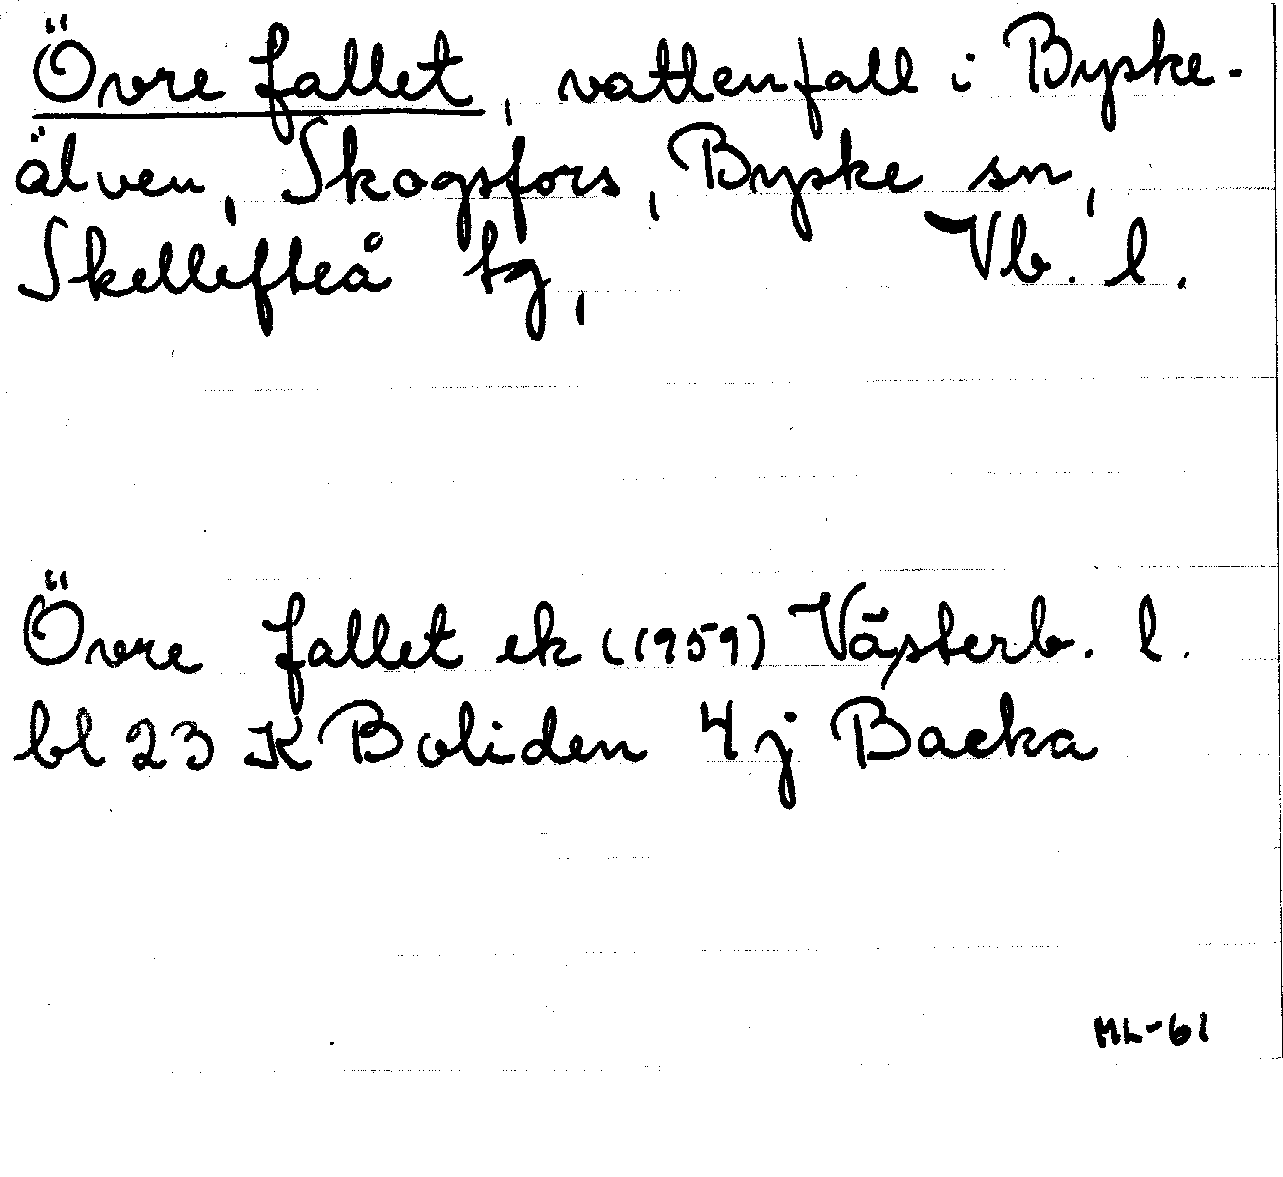 Övre fallet, vattenfall i Byske-
älven, Skogsfors, Byske sn,
Skellefteå tg, Vb. l.
Övre fallet ek (1959) Västerb. l.
bl 23 K Boliden 4j Backa
ML-61